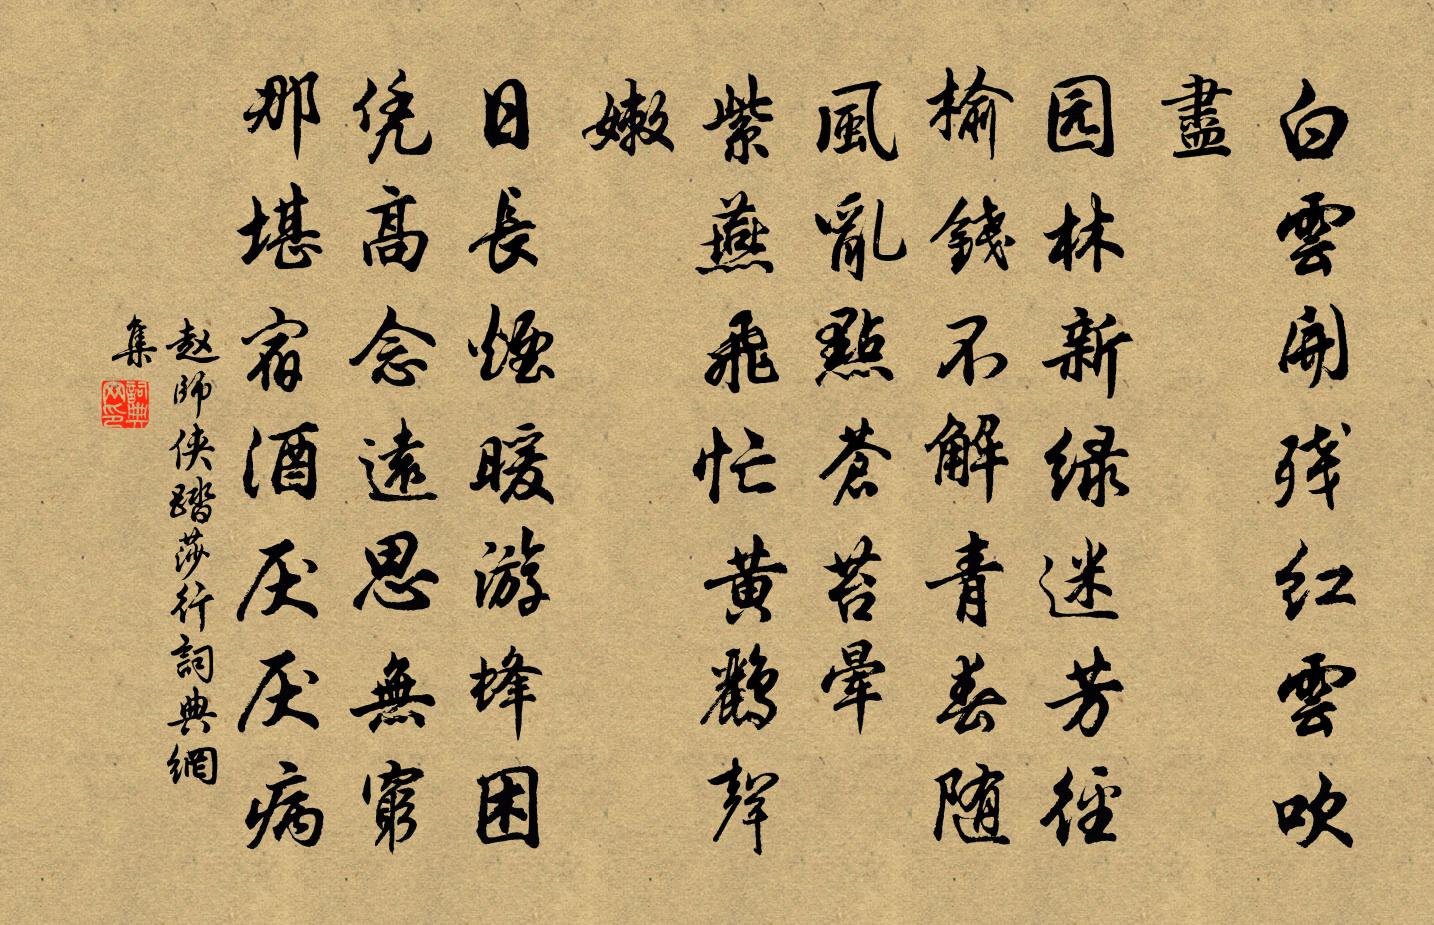 白雲開残红雲吹
盡
园林新緑迷芳径
榆錢不解青春随
風亂點蒼苔暈
紫燕飛忙黄鸝聲
嫩
日長煙暖游蜂困
凭高念遠思無窮
那堪宿酒厌厌病
赵師侠踏莎行詞典網
集
詞典网印